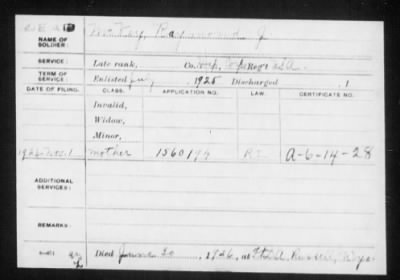 NAME OF SOLDIER: McKay, Raymond J
SERVICE: Late rank, Co. Reg't USA
TERM OF SERVICE: Enlisted July, 1925 Discharged , 1
DATE OF FILING. CLASS. APPLICATION NO. LAW. CERTIFICATE NO.
Invalid,
Widow,
Minor,
1926 Nov. 1 mother 1560194 A-6-14-28
ADDITIONAL SERVICES:
REMARKS:
Died 20, 1926, at Ft D.A. Russell, Wyo